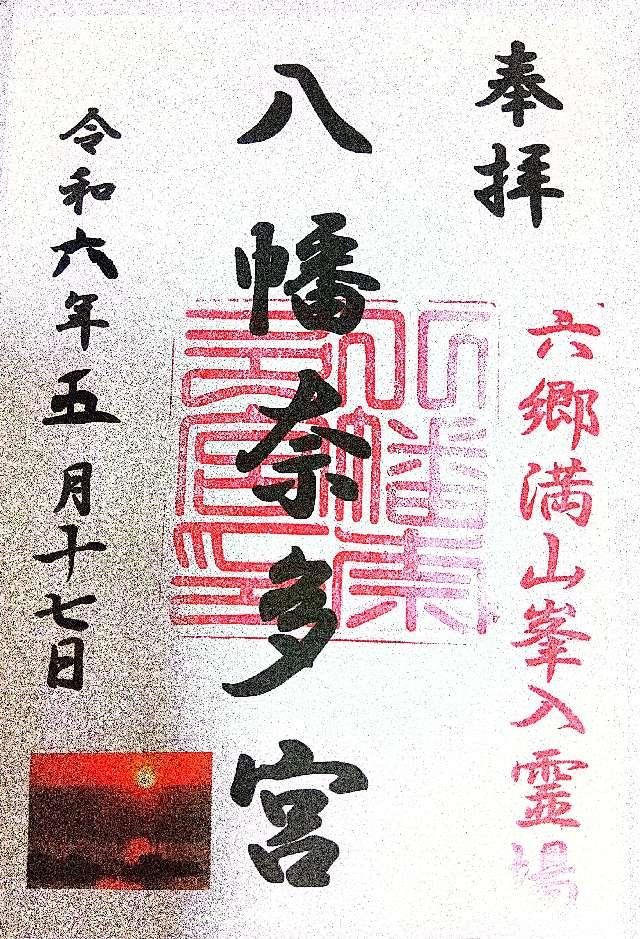 奉拝
六郷満山峯入霊場
八幡奈多宮
令和六年五月十七日